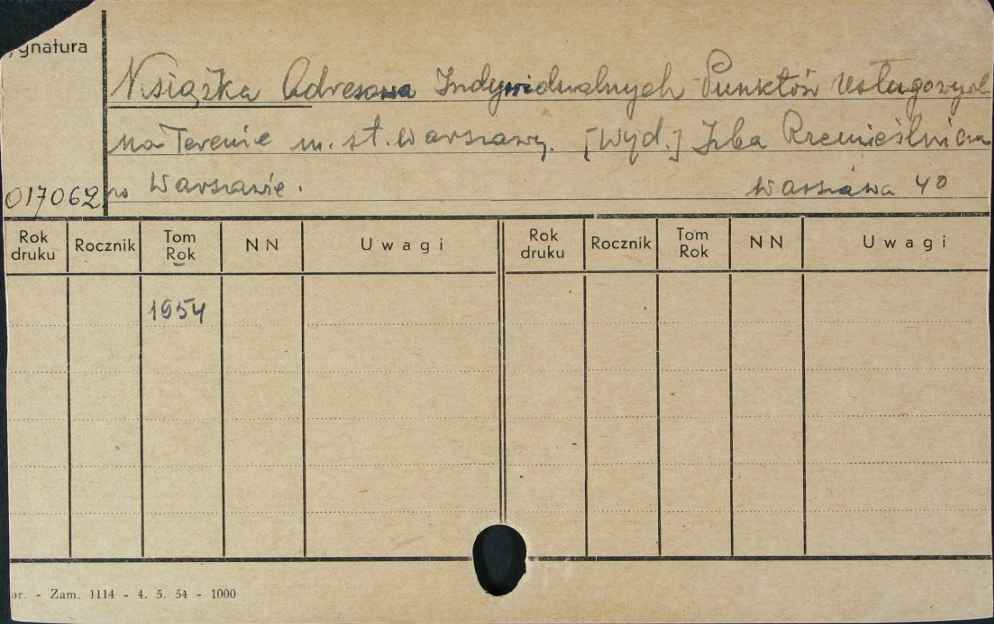 ygnatura
Książka Adresowa Indywidualnych Punktów Usługowych
na Terenie m. st. Warszawy. [Wyd.] Izba Rzemieślnicza
017062 w Warszawie. Warszawa 4°
Rok druku Rocznik Tom Rok NN Uwagi Rok druku Rocznik Tom Rok NN Uwagi
1954
ar. - Zam. 1114 - 4. 5. 54 - 1000